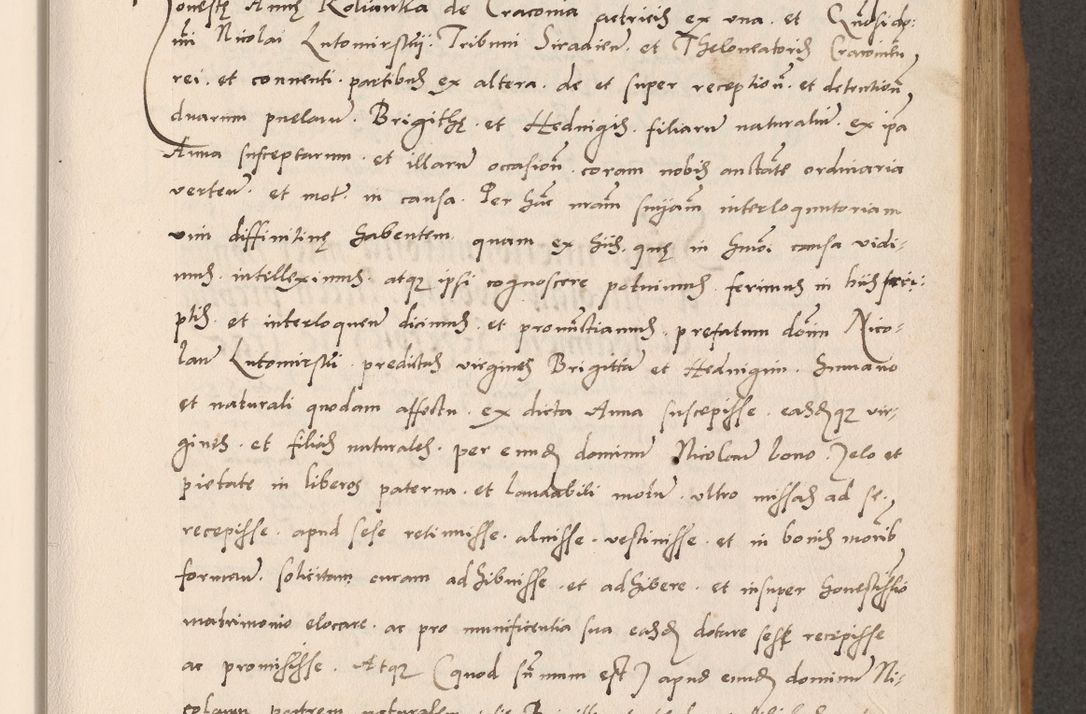 honestę Annę Koliantka de Cracovia actricis ex una et Gnosi do-
mi Nicolai Lutomirskij Tribuni Siradien et Theloneatoris Cracovien
rei et conventi partibus ex altera de et super reception et detention
duarum puelarum Brigithę et Hedvigis filiarum naturalium ex ipsa
Anna susceptarum et illarum occasion coram nobis auctate ordinaria
verten et mot in causa Per hanc nram sniam interloqutoriam
vim diffinitivę habentem quam ex hiis quę in hmoi causa vidi-
mus intelleximus atque ipsi cognoscere potuimus ferimus in hiis scri-
ptis et interloquen dicimus et pronunctiamus prefatum dnm Nico-
laum Lutomirskii predictas virgines Brigittam et Hedvigim humano
et naturali quodam affectu ex dicta Anna suscepisse easdemque vir-
gines et filias naturales per eundem dominum Nicolaum bono zelo et
pietate in liberos paterna et laudabili motum ultro missas ad se
recepisse apud sese retinuisse aluisse vestivisse et in bonis morib
formam solicitam curam adhibuisse et adhibere et insuper honestissio
matrimonio elocare ac pro munificentia sua easdem dotare sese recepisse
ac promisisse Atque (quod summum est) apud eundem dominum Ni-
colaum patrem naturalem